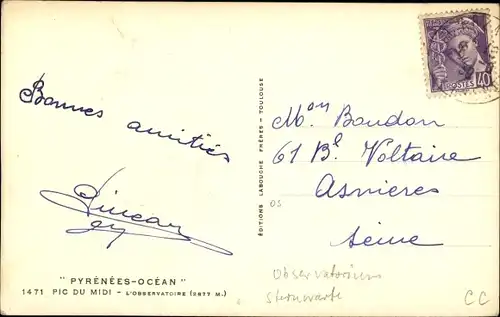 Bonnes amitiés
" PYRÉNÉES-OCÉAN "
1471 PIC DU MIDI - L'OBSERVATOIRE (2877 M.)
ÉDITIONS LABOUCHE FRÈRES - TOULOUSE
POSTES 40
Mon Boudon
61 Bl Voltaire
Asnières
Seine
OS
Observatorium
Sternwarte
CC